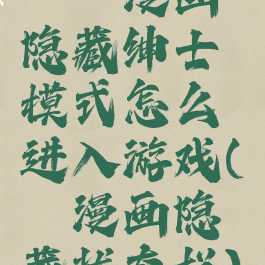 漫画
隐藏绅士
模式怎么
进入游戏(
漫画隐